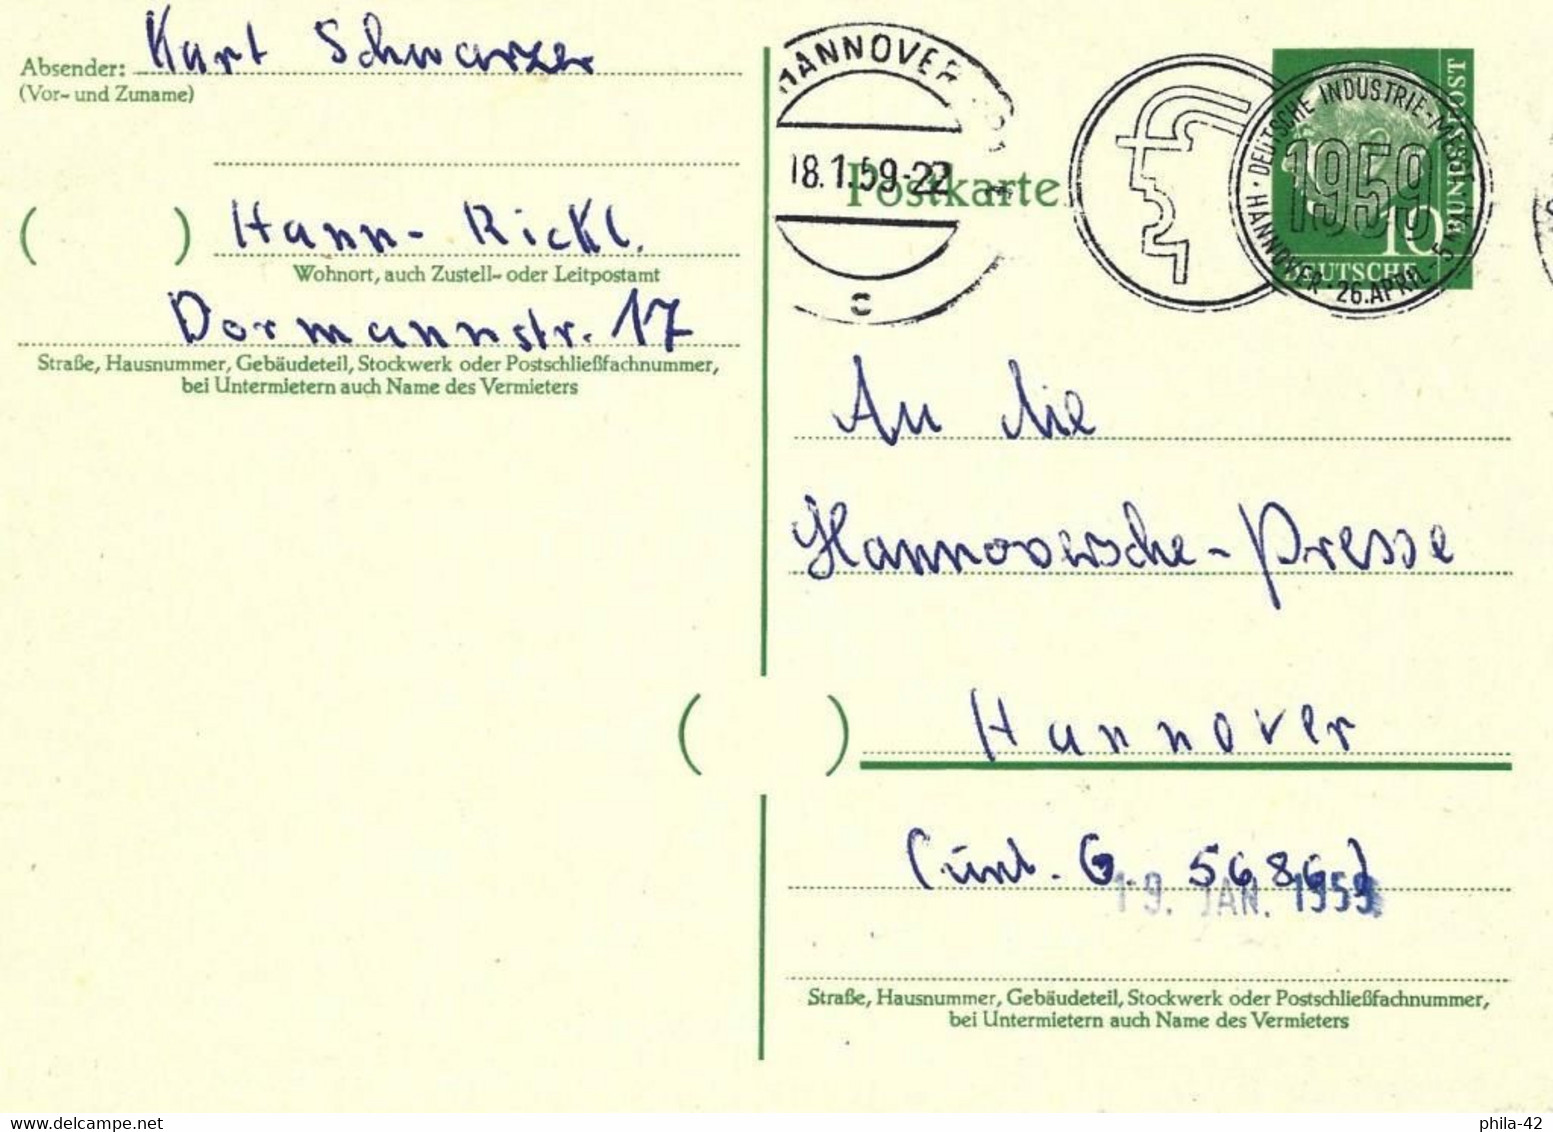 Absender: Kurt Schwarzer
(Vor- und Zuname)
( ) Hann- Rickl.
Wohnort, auch Zustell- oder Leitpostamt
Dormannstr. 17
Straße, Hausnummer, Gebäudeteil, Stockwerk oder Postschließfachnummer,
bei Untermietern auch Name des Vermieters
HANNOVER
18.1.59-22
c
Postkarte
DEUTSCHE INDUSTRIE-MESSE
1959
HANNOVER · 26. APRIL - 5.
10
DEUTSCHE
BUNDESPOST
An die
Hannoversche-Presse
( ) Hannover
(unt. G 5686)
19. JAN. 1959
Straße, Hausnummer, Gebäudeteil, Stockwerk oder Postschließfachnummer,
bei Untermietern auch Name des Vermieters
delcampe.net
phila-42